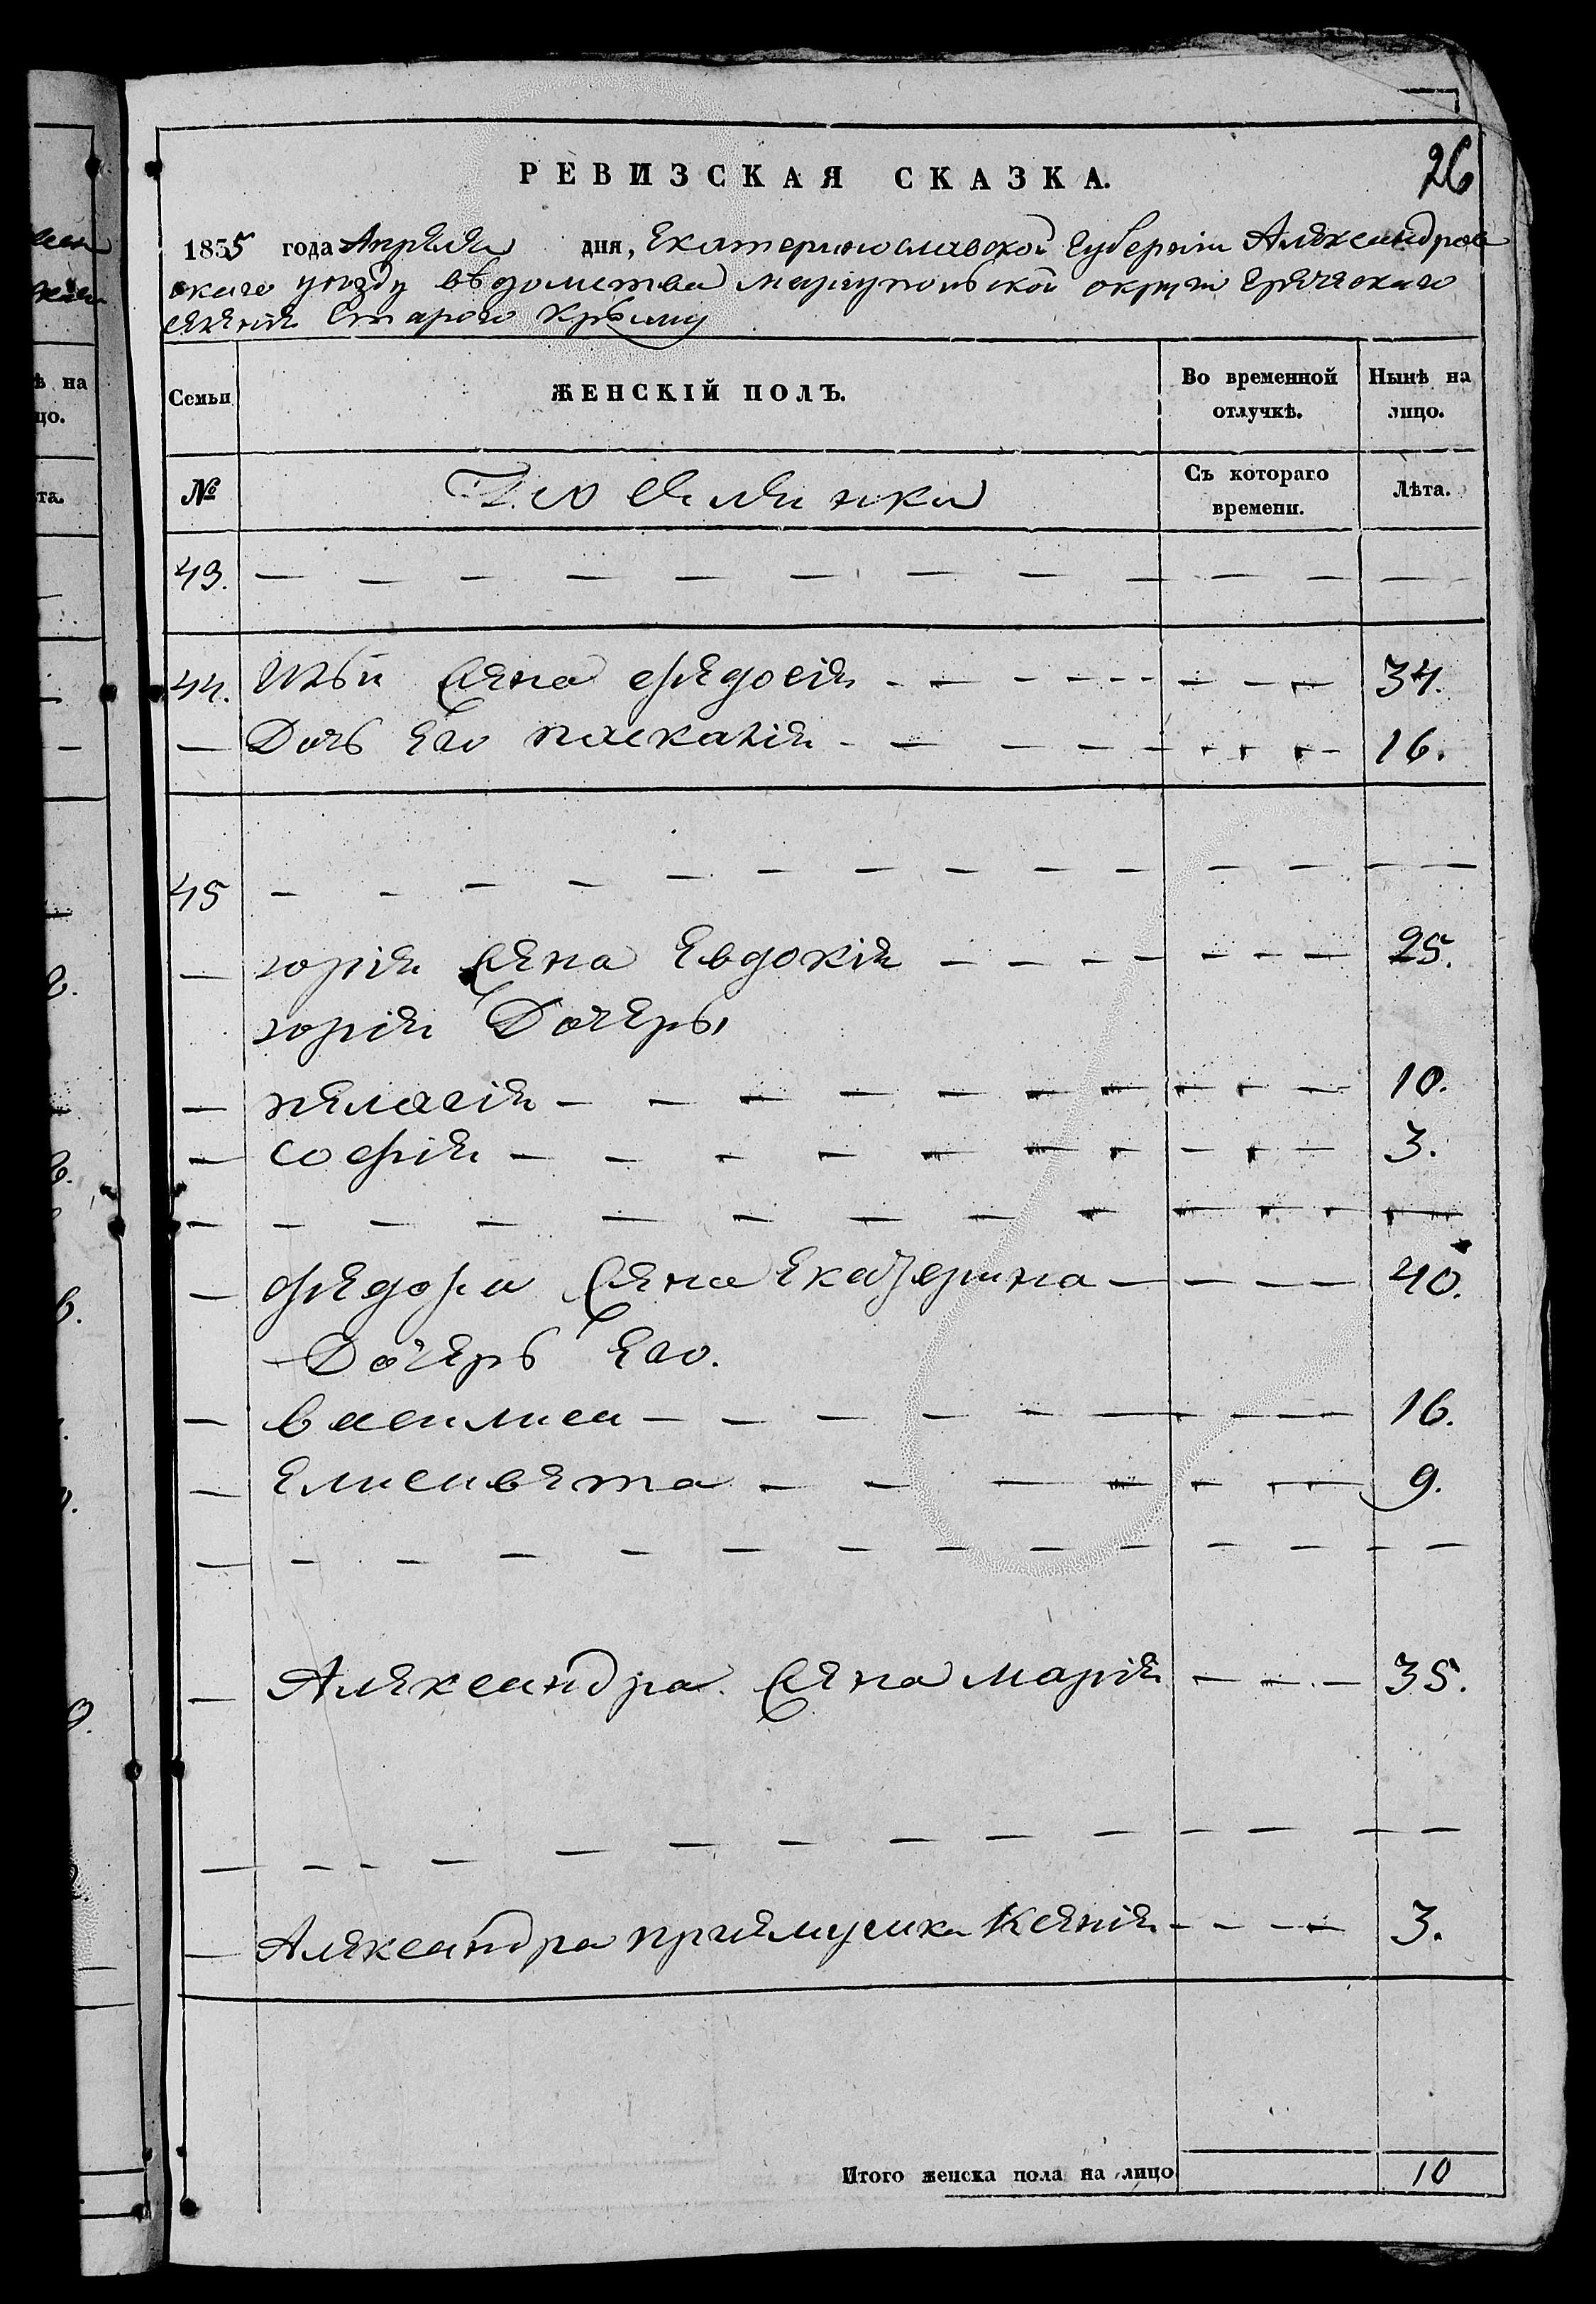 26
РЕВИЗСКАЯ СКАЗКА.
1835 года Апреля дня, Екатеринославской Губернiи Александров
скаго уезду вѣдомства мариупольской округи Греческаго
селенiя Старого Крыму
Семьи ЖЕНСКІЙ ПОЛЪ. Во временной отлучкѣ. Нынѣ на лицо.
№ Съ котораго времени. Лѣта.
43. — — — — — — — — — — — —
44. жена федосiя - - - - - - - - 34.
— Дочь Его паскалiя - - - - - - - - 16.
45 - - - - - - - - - - - - -
— юрiя жена Евдокiя - - - - - - - 25.
юрiя Дочеры
— пелагiя - - - - - - - - - - 10.
— софiя - - - - - - - - - - 3.
— - - - - - - - - - - - - -
— федора жена Екатерина - - - - 40.
Дочерь Его.
— василиса - - - - - - - - 16.
— Елисавета - - - - - - - 9.
— - - - - - - - - - - - - -
— Александра жена марiя - - - - 35.
— - - - - - - - - - - - - -
— Александра приемушка Ксенiя - - - - 3.
Итого женска пола на лицо 10